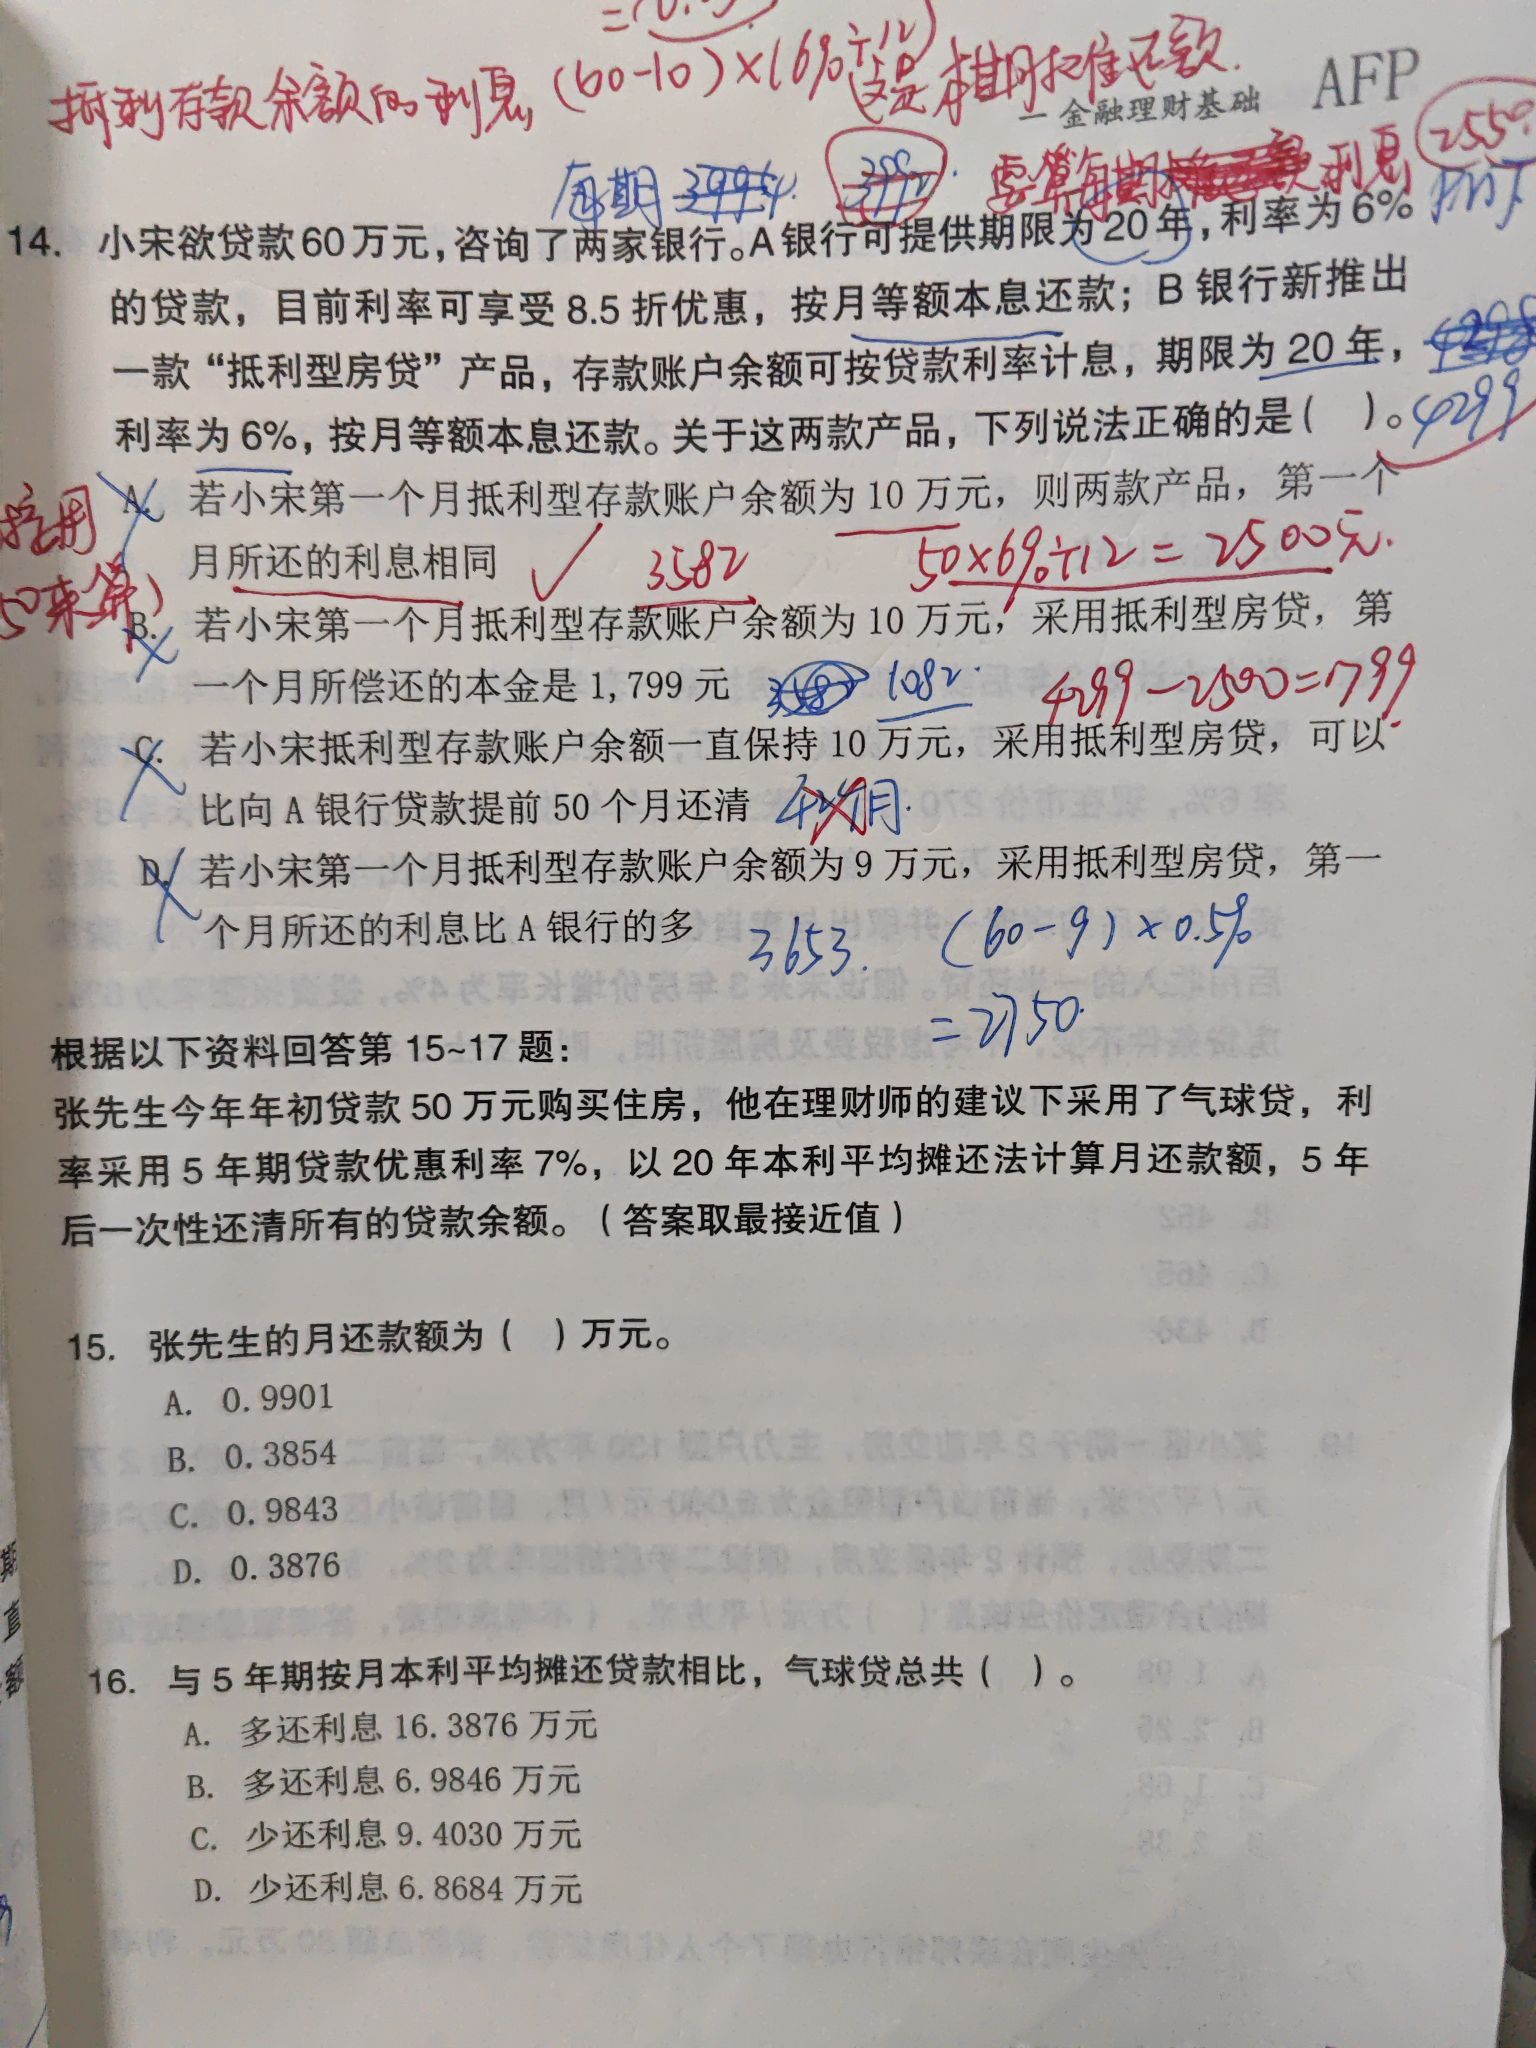 抵利存款余额的利息 (60-10)×(6%÷12) 这是本期标准还款.
一 金融理财基础 AFP
每期 要算每期 利息 2550.
14. 小宋欲贷款60万元，咨询了两家银行。A银行可提供期限为20年，利率为6%
的贷款，目前利率可享受8.5折优惠，按月等额本息还款；B银行新推出
一款“抵利型房贷”产品，存款账户余额可按贷款利率计息，期限为20年，
利率为6%，按月等额本息还款。关于这两款产品，下列说法正确的是（ ）。4299
A. 若小宋第一个月抵利型存款账户余额为10万元，则两款产品，第一个
月所还的利息相同 3582 50×6%÷12=2500元.
B. 若小宋第一个月抵利型存款账户余额为10万元，采用抵利型房贷，第
一个月所偿还的本金是1,799元 1082. 4299-2500=1799
C. 若小宋抵利型存款账户余额一直保持10万元，采用抵利型房贷，可以
比向A银行贷款提前50个月还清
D. 若小宋第一个月抵利型存款账户余额为9万元，采用抵利型房贷，第一
个月所还的利息比A银行的多 3653. (60-9)×0.5%
=2750.
根据以下资料回答第15~17题：
张先生今年年初贷款50万元购买住房，他在理财师的建议下采用了气球贷，利
率采用5年期贷款优惠利率7%，以20年本利平均摊还法计算月还款额，5年
后一次性还清所有的贷款余额。（答案取最接近值）
15. 张先生的月还款额为（ ）万元。
A. 0.9901
B. 0.3854
C. 0.9843
D. 0.3876
16. 与5年期按月本利平均摊还贷款相比，气球贷总共（ ）。
A. 多还利息16.3876万元
B. 多还利息6.9846万元
C. 少还利息9.4030万元
D. 少还利息6.8684万元